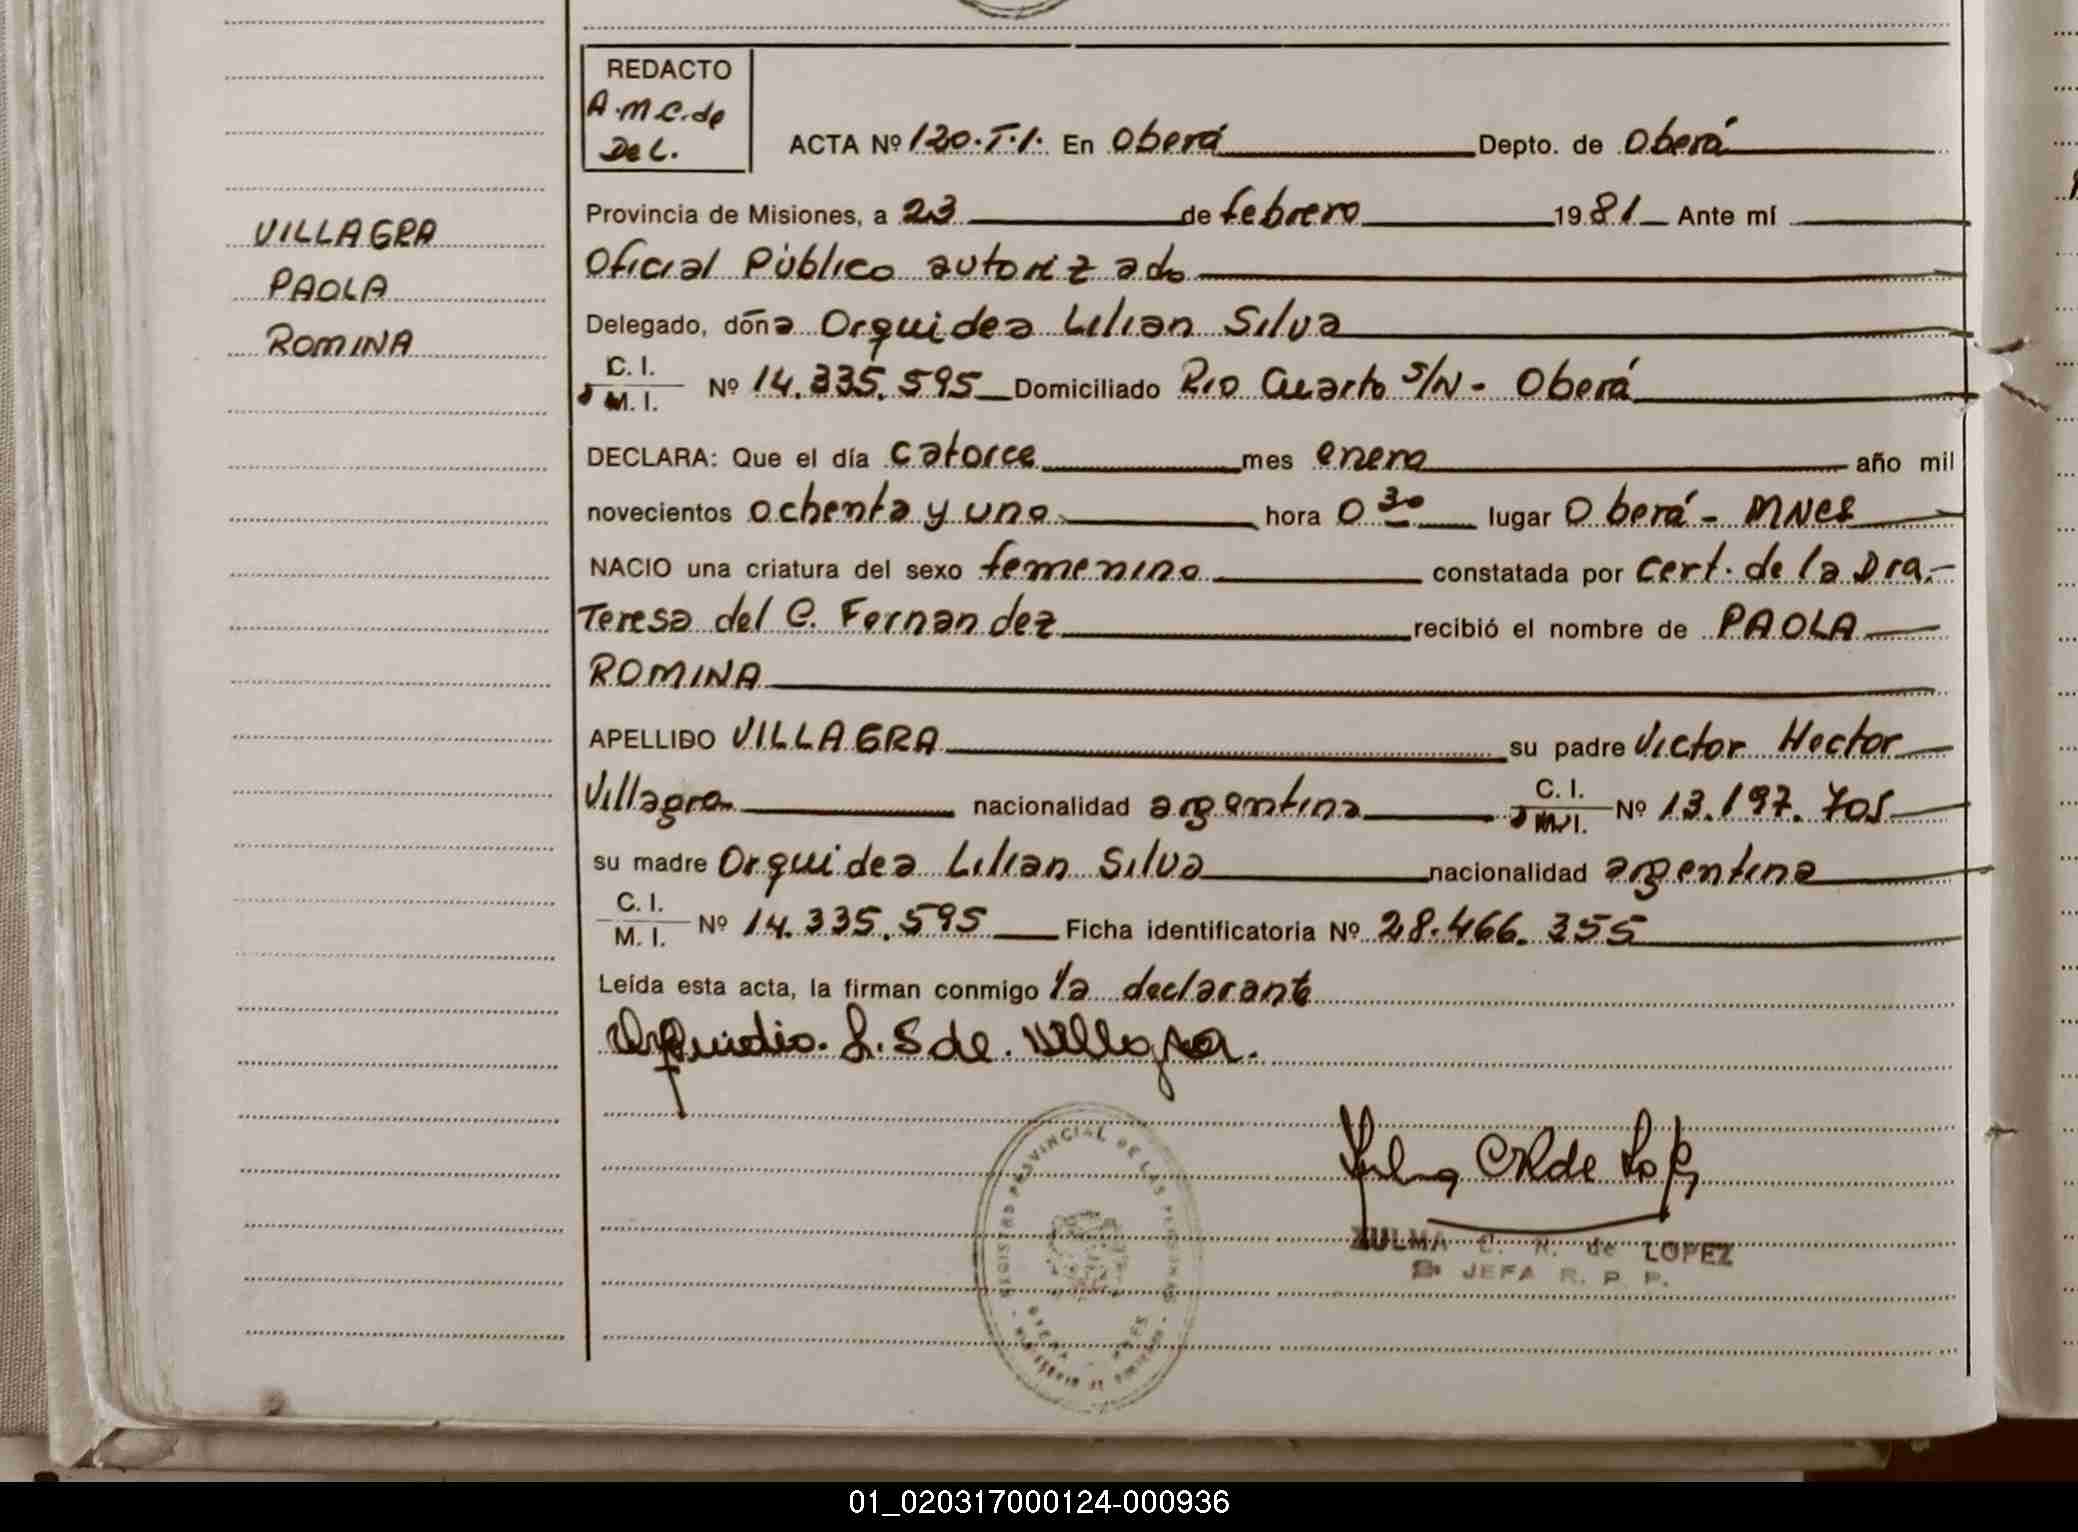 REDACTO
A.M.C. de
De L.
ACTA Nº 120.T.1. En Oberá Depto. de Oberá
Provincia de Misiones, a 23 de febrero 1981 Ante mí
Oficial Público autorizado
VILLAGRA
PAOLA
ROMINA
Delegado, doña Orquidea Lilian Silva
C. I.
M. I. Nº 14.335.595 Domiciliado Rio Cuarto S/N - Oberá
DECLARA: Que el día catorce mes enero año mil
novecientos ochenta y uno hora 0 30 lugar Oberá - MNES
NACIO una criatura del sexo femenino constatada por cert. de la Dra.-
Teresa del C. Fernandez recibió el nombre de PAOLA
ROMINA
APELLIDO VILLAGRA su padre Victor Hector
Villagra nacionalidad argentina C. I.
M. I. Nº 13.197.705
su madre Orquidea Lilian Silva nacionalidad argentina
C. I.
M. I. Nº 14.335.595 Ficha identificatoria Nº 28.466.355
Leída esta acta, la firman conmigo la declarante
Orquidia. L. S de. Villagra.
REGISTRO PROVINCIAL DE LAS PERSONAS
OBERA - MNES
Zulma C R de Lopez
ZULMA C. R. de LOPEZ
JEFA R. P. P.
01_020317000124-000936